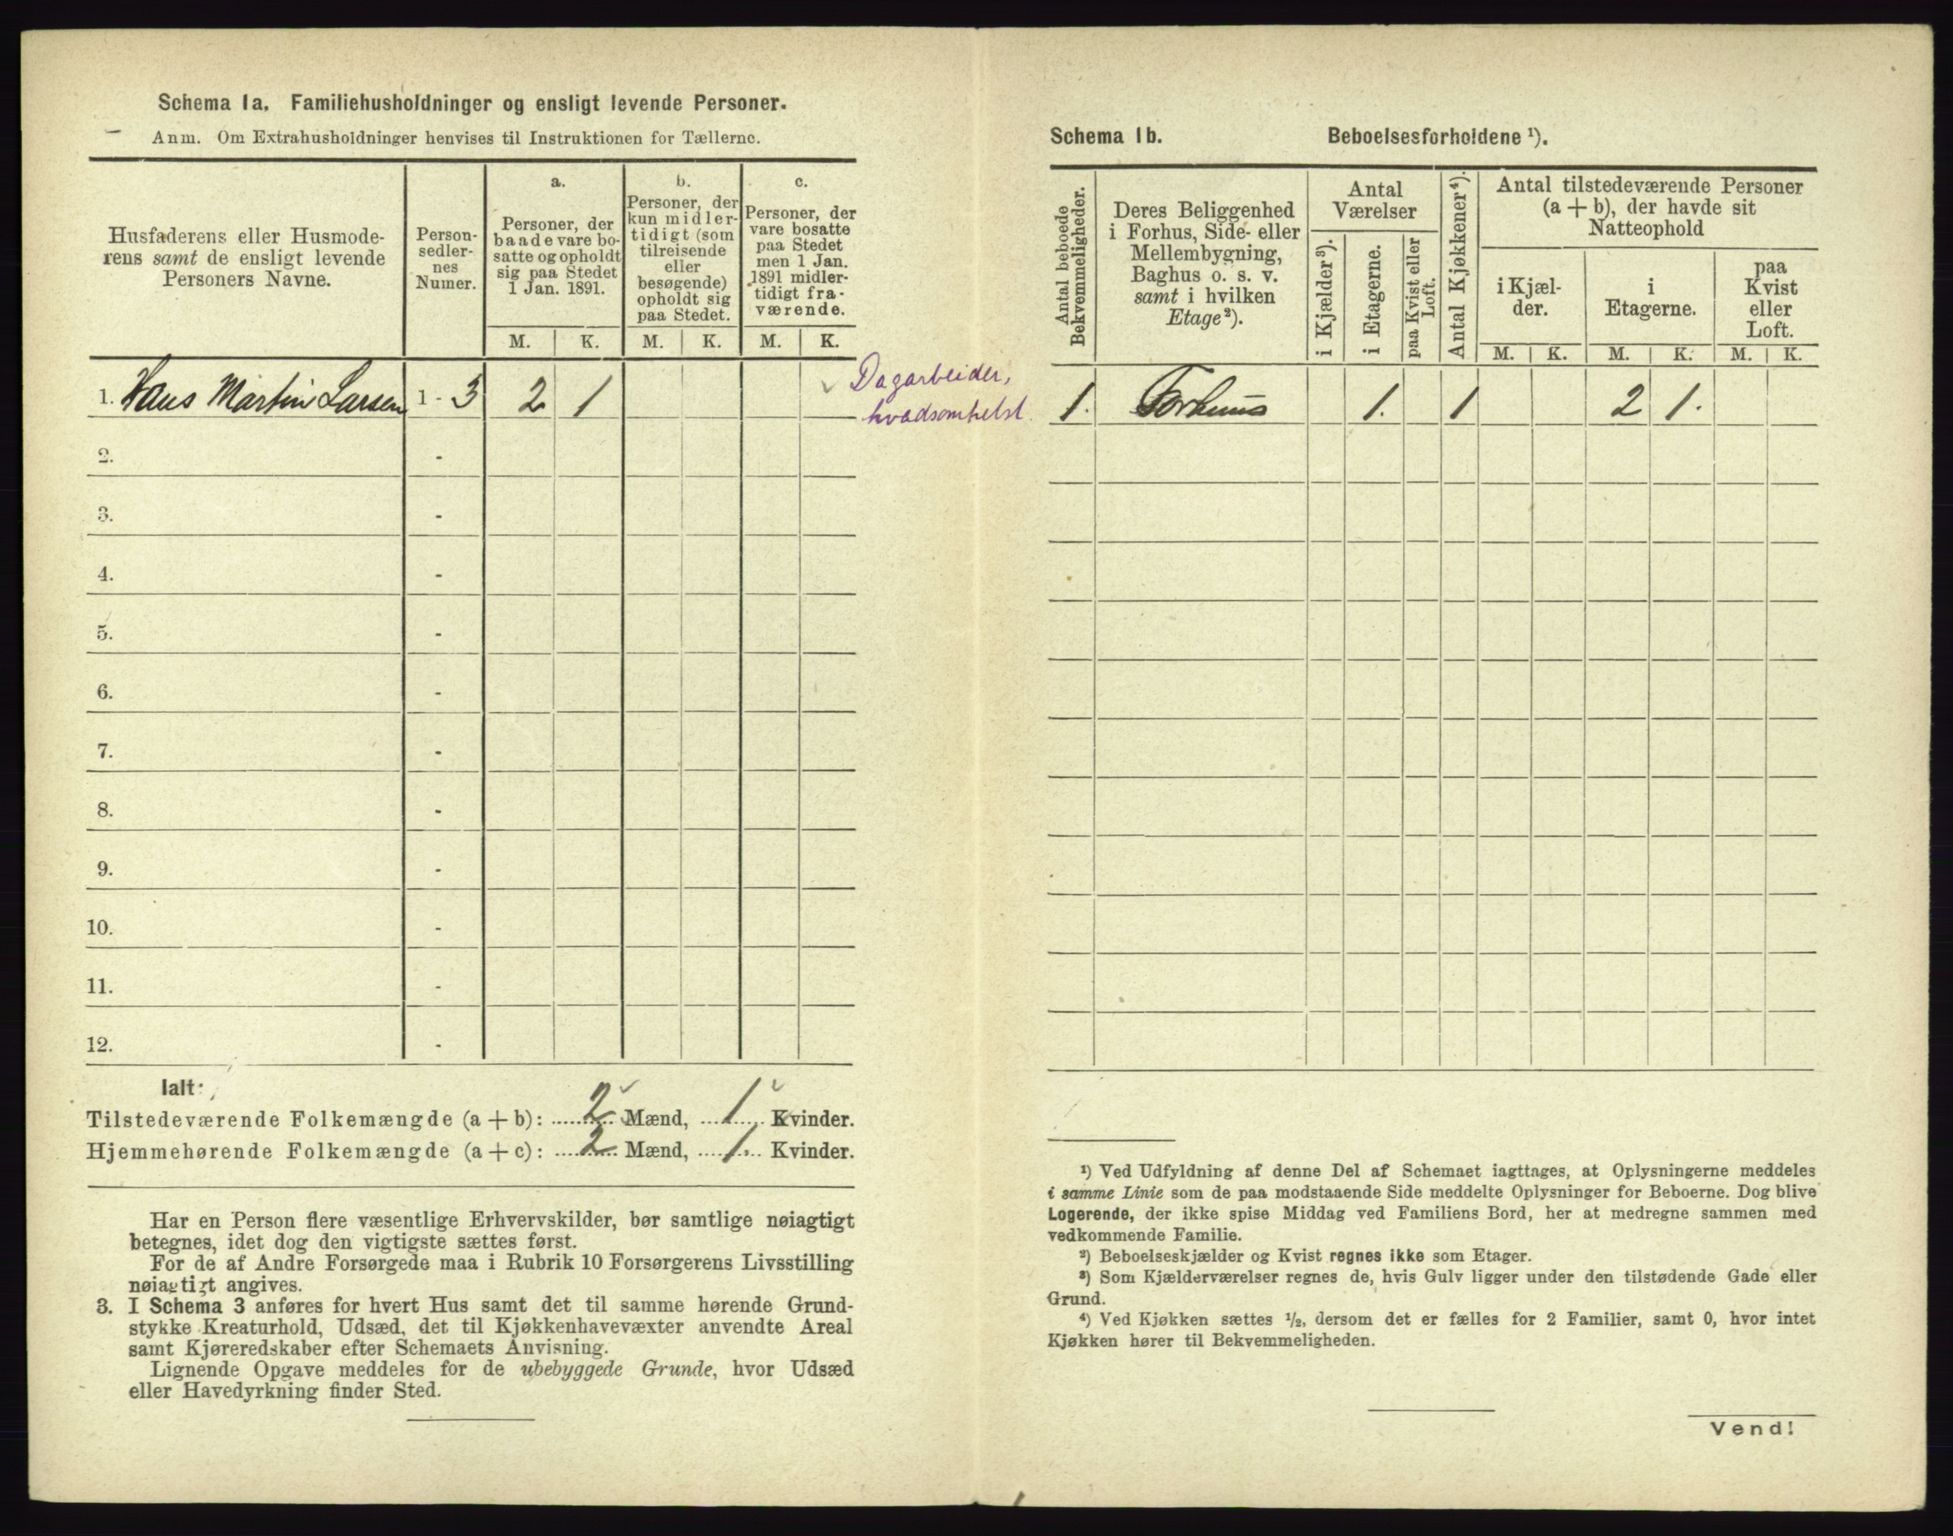 Schema 1a. Familiehusholdninger og ensligt levende Personer.
Anm. Om Extrahusholdninger henvises til Instruktionen for Tællerne.
Husfaderens eller Husmode-
rens samt de ensligt levende
Personers Navne.
Person-
sedler-
nes
Numer.
a.
Personer, der
baade vare bo-
satte og opholdt
sig paa Stedet
1 Jan. 1891.
b.
Personer, der
kun midler-
tidigt (som
tilreisende
eller
besøgende)
opholdt sig
paa Stedet.
c.
Personer, der
vare bosatte
paa Stedet
men 1 Jan.
1891 midler-
tidigt fra-
værende.
M. K. M. K. M. K.
1. Hans Martin Larsen 1 - 3 2 1
Dagarbeider,
hvadsomhelst.
2. -
3. -
4. -
5. -
6. -
7. -
8. -
9. -
10. -
11. -
12. -
Ialt:
Tilstedeværende Folkemængde (a + b): 2 Mænd, 1 Kvinder.
Hjemmehørende Folkemængde (a + c): 2 Mænd, 1 Kvinder.
Har en Person flere væsentlige Erhvervskilder, bør samtlige nøiagtigt
betegnes, idet dog den vigtigste sættes først.
For de af Andre Forsørgede maa i Rubrik 10 Forsørgerens Livsstilling
nøiagtigt angives.
3. I Schema 3 anføres for hvert Hus samt det til samme hørende Grund-
stykke Kreaturhold, Udsæd, det til Kjøkkenhavevæxter anvendte Areal
samt Kjøreredskaber efter Schemaets Anvisning.
Lignende Opgave meddeles for de ubebyggede Grunde, hvor Udsæd
eller Havedyrkning finder Sted.
Schema 1b. Beboelsesforholdene ¹).
Antal beboede
Bekvemmeligheder.
Deres Beliggenhed
i Forhus, Side- eller
Mellembygning,
Baghus o. s. v.
samt i hvilken
Etage²).
Antal
Værelser
i Kjælder³).
i Etagerne.
paa Kvist eller
Loft.
Antal Kjøkkener⁴).
Antal tilstedeværende Personer
(a + b), der havde sit
Natteophold
i Kjæl-
der.
i
Etagerne.
paa
Kvist
eller
Loft.
M. K. M. K. M. K.
1. Forhuus 1. 1 2 1.
¹) Ved Udfyldning af denne Del af Schemaet iagttages, at Oplysningerne meddeles
i samme Linie som de paa modstaaende Side meddelte Oplysninger for Beboerne. Dog blive
Logerende, der ikke spise Middag ved Familiens Bord, her at medregne sammen med
vedkommende Familie.
²) Beboelseskjælder og Kvist regnes ikke som Etager.
³) Som Kjælderværelser regnes de, hvis Gulv ligger under den tilstødende Gade eller
Grund.
⁴) Ved Kjøkken sættes ½, dersom det er fælles for 2 Familier, samt 0, hvor intet
Kjøkken hører til Bekvemmeligheden.
Vend!